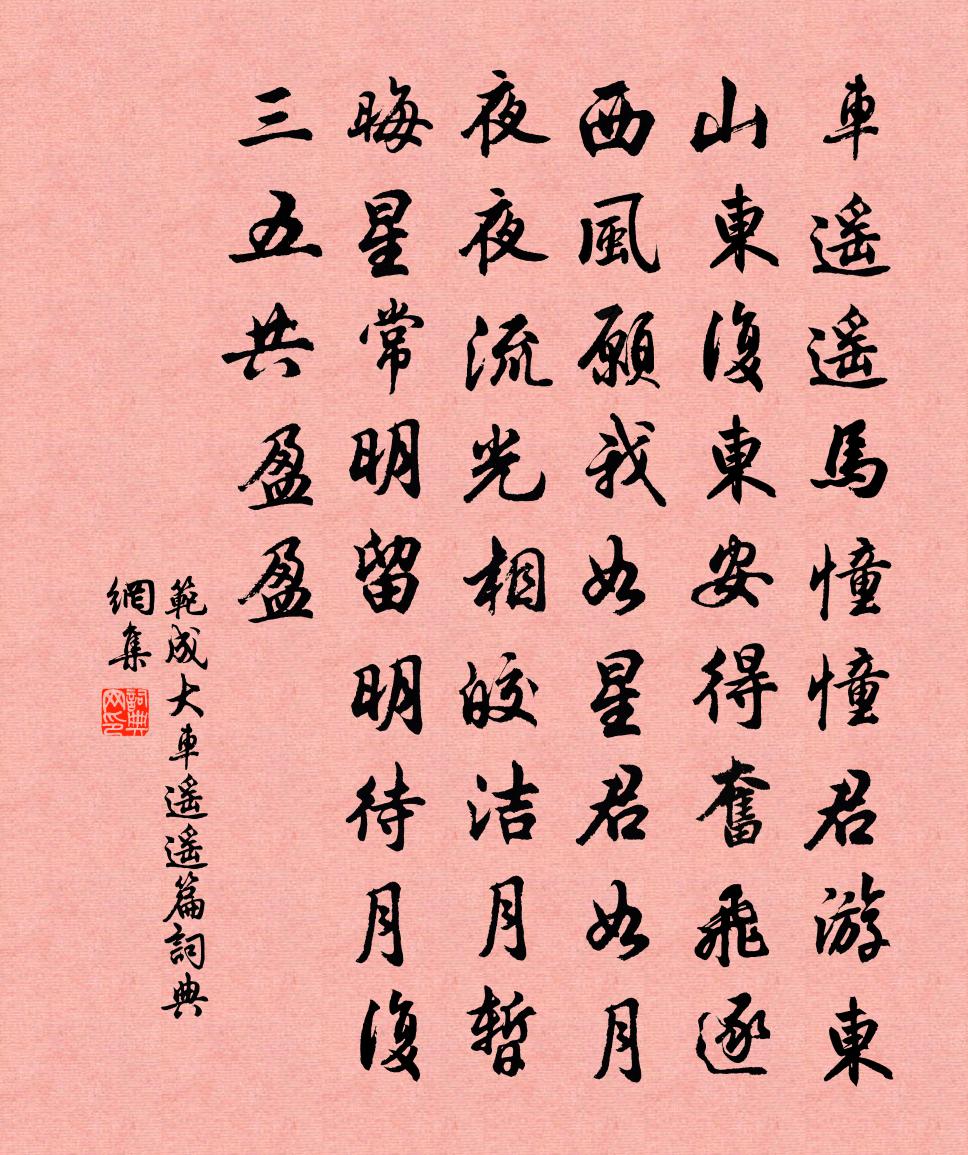 車遥遥馬憧憧君游東
山東復東安得奮飛逐
西風願我如星君如月
夜夜流光相皎洁月暫
晦星常明留明待月復
三五共盈盈
範成大車遥遥篇詞典
網集
詞典网印